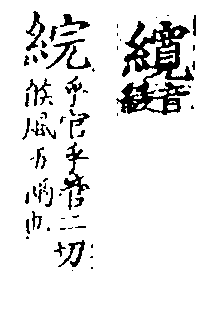 音
綄
乎官乎管二切
候風五兩也